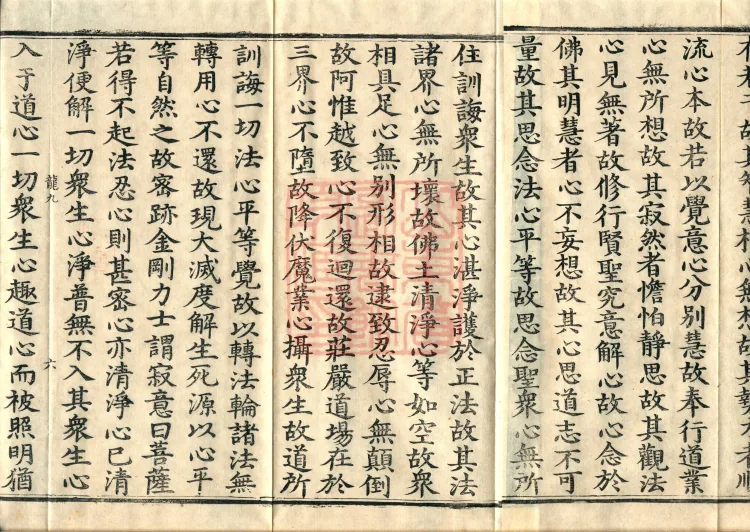 流心本故若以覺意心分別慧故奉行道業
心無所想故其寂然者憺怕靜思故其觀法
心見無著故修行賢聖究意解心故心念於
佛其明慧者心不妄想故其心思道志不可
量故其思念法心平等故思念聖衆心無所
住訓誨衆生故其心湛淨護於正法故其法
諸界心無所壞故佛土清淨心等如空故衆
相具足心無别形相故逮致忍辱心無顛倒
故阿惟越致心不復迴還故莊嚴道場在於
三界心不墮故降伏魔業心攝衆生故道所
訓誨一切法心平等覺故以轉法輪諸法無
轉用心不還故現大滅度解生死源以心平
等自然之故密跡金剛力士謂寂意曰菩薩
若得不起法忍心則甚密心亦清淨心已清
淨便解一切衆生心淨普無不入其衆生心
龍九
六
入于道心一切衆生心趣道心而被照明猶